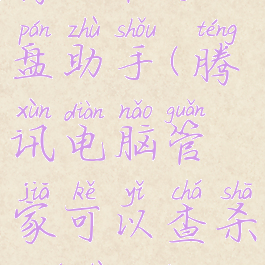 pán zhù shǒu téng
盘助手(腾
xùn diàn nǎo guǎn
讯电脑管
jiā kě yǐ chá shā
家可以查杀